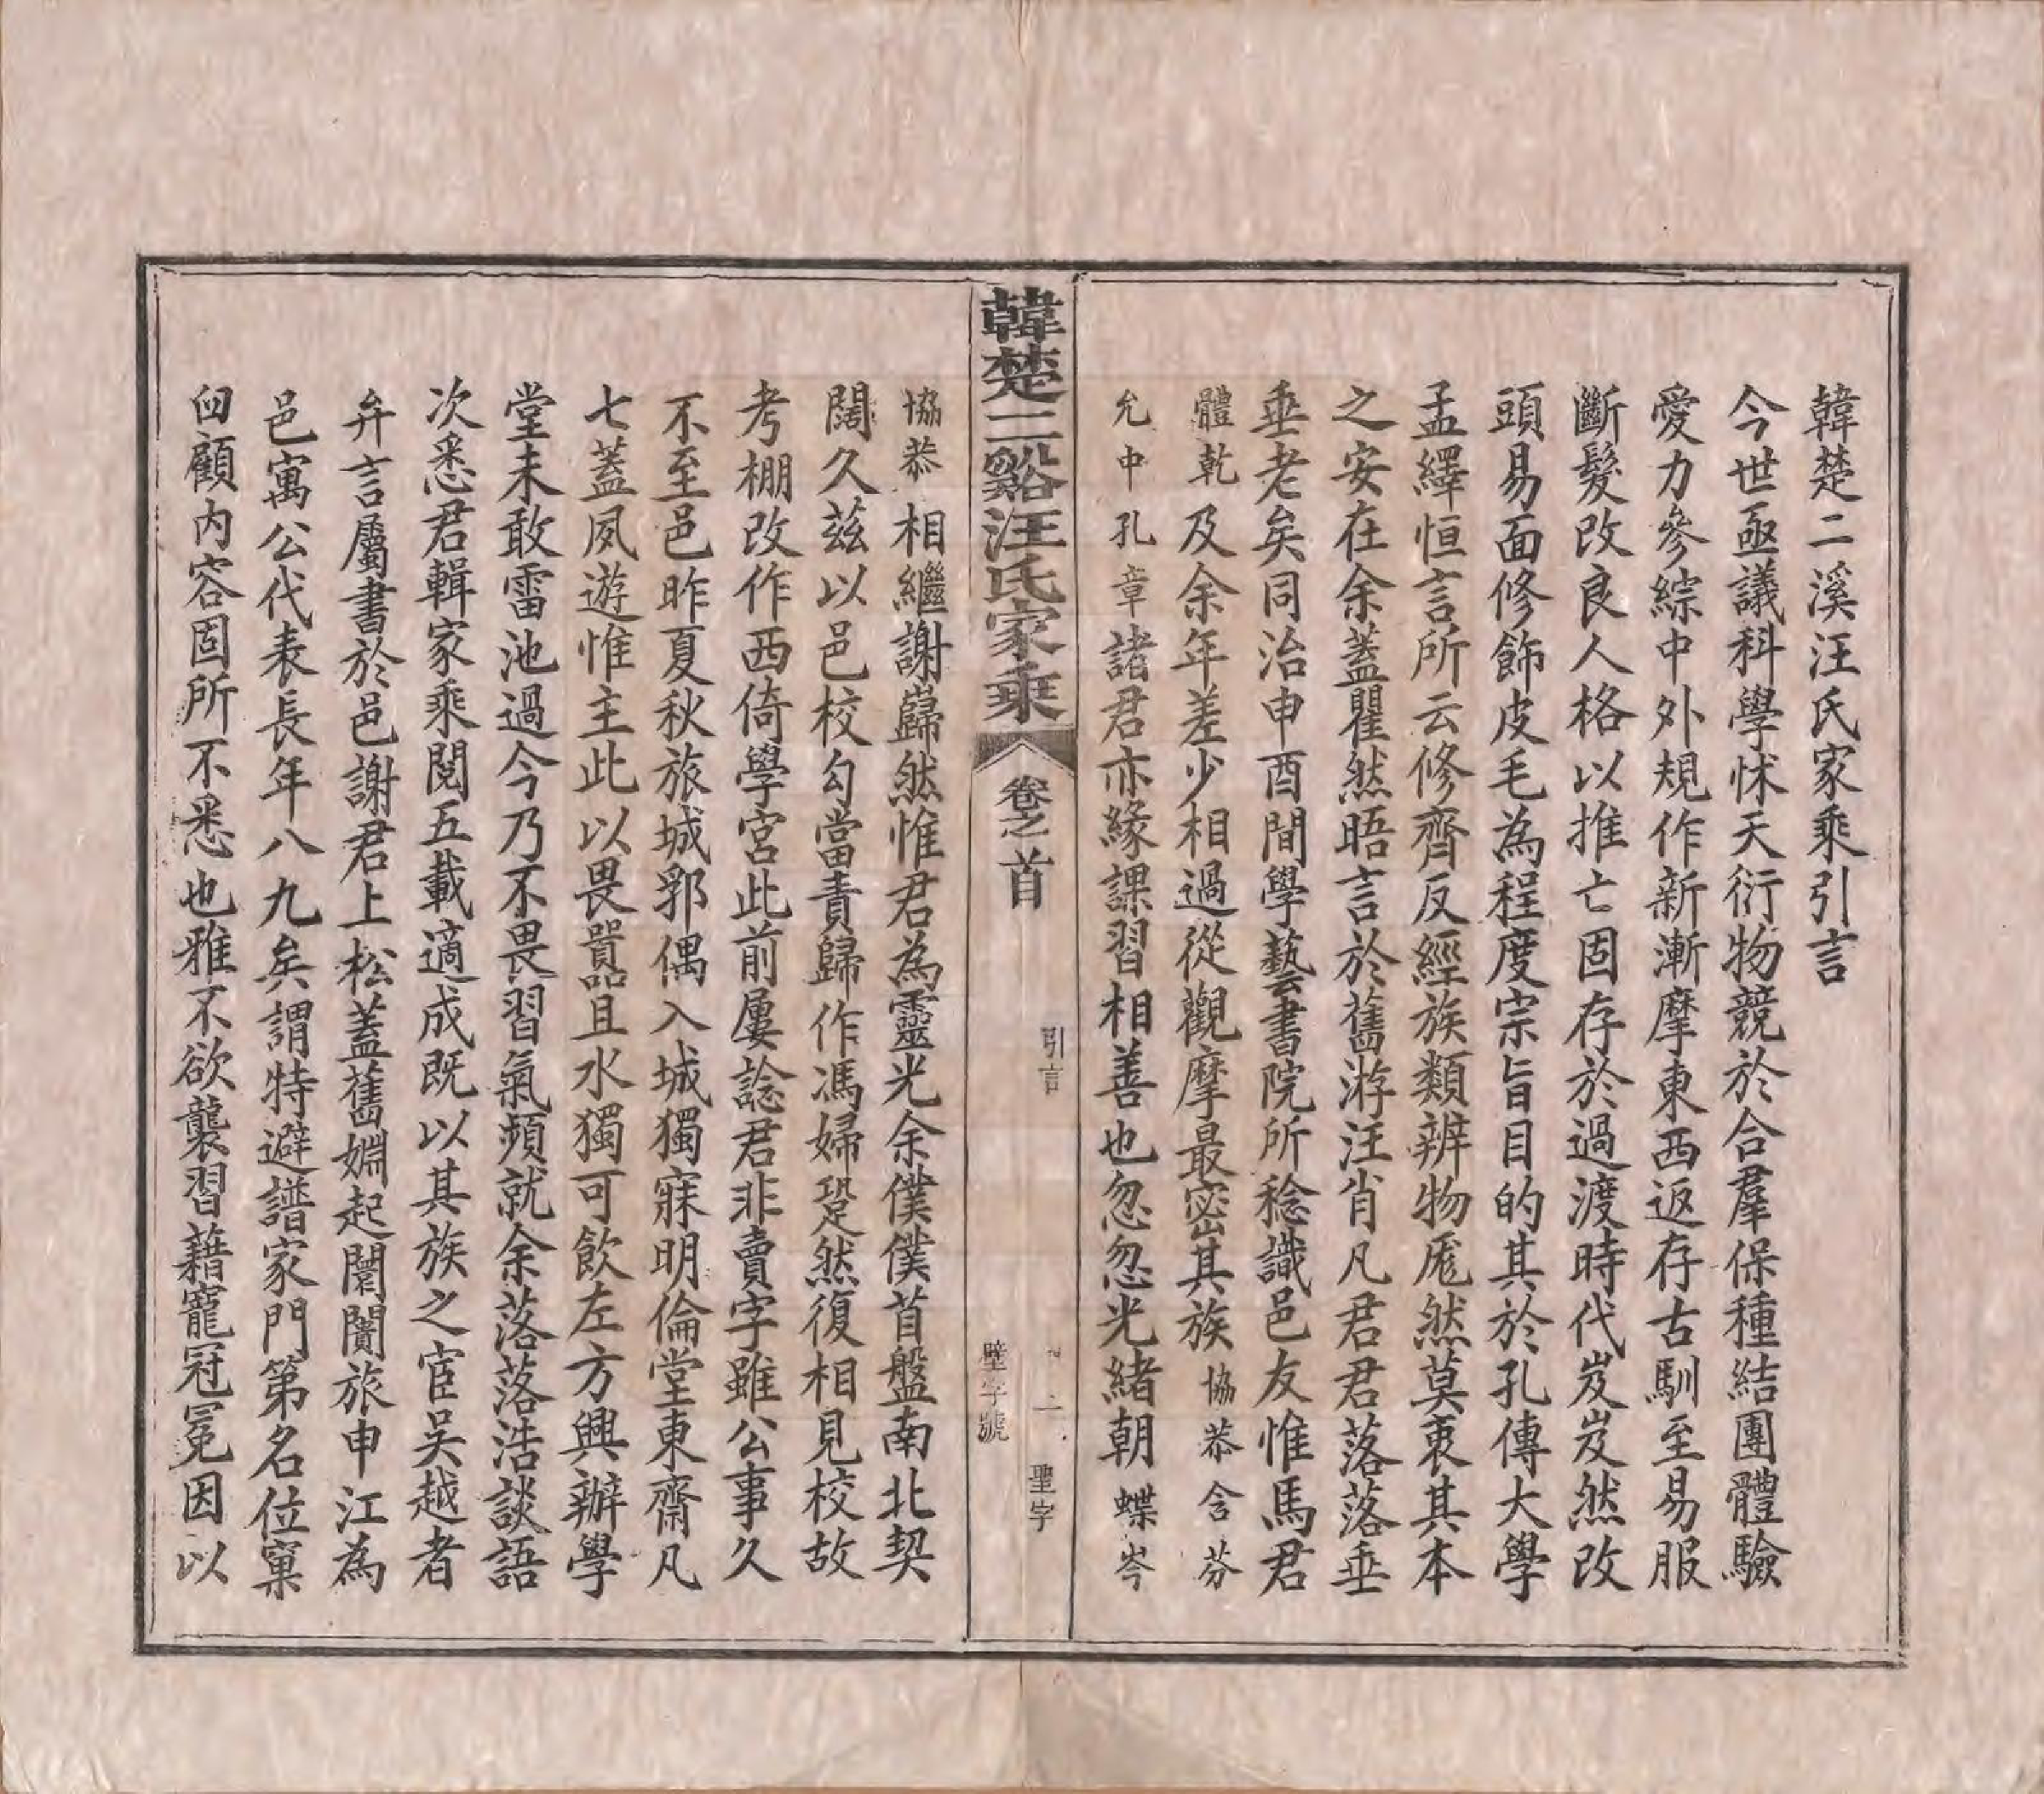 韓楚二溪汪氏家乘引言
今世亟議科學怵天衍物競於合羣保種結團體驗
愛力參綜中外規作新漸摩東西返存古馴至易服
斷髮改良人格以推亡固存於過渡時代岌岌然改
頭易面修飾皮毛為程度宗旨目的其於孔傳大學
孟繹恒言所云修齊反經族類辨物厖然莫衷其本
之安在余蓋瞿然晤言於舊游汪肖凡君君落落垂
垂老矣同治申酉間學藝書院所稔識邑友惟馬君
體乾及余年差少相過從觀摩最密其族協恭含芬
允中孔章諸君亦緣課習相善也忽忽光緒朝蝶岑
韓楚二谿汪氏家乘
卷之首
引言
二
聖字
壁字號
協恭相繼謝巋然惟君為靈光余僕僕首盤南北契
闊久茲以邑校勾當責歸作馮婦跫然復相見校故
考棚改作西倚學宮此前屢諗君非賣字雖公事久
不至邑昨夏秋旅城郛偶入城獨寐明倫堂東齋凡
七蓋夙遊惟主此以畏囂且水獨可飲左方興辦學
堂未敢雷池過今乃不畏習氣頻就余落落浩談語
次悉君輯家乘閱五載適成既以其族之宦吳越者
弁言屬書於邑謝君上松蓋舊婣起闤闠旅申江為
邑寓公代表長年八九矣謂特避譜家門第名位窠
臼顧內容固所不悉也雅不欲襲習藉寵冠冕因以